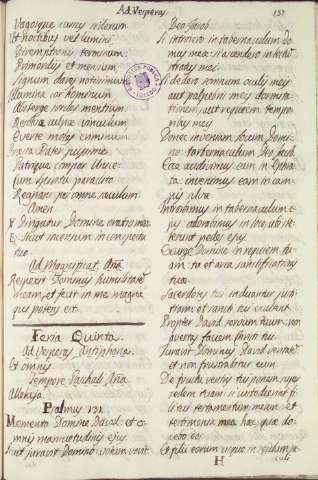 Ad Vesperas
151
Vagosque cursus siderum
Ut noctibus vel lumini
Diremptionis terminum,
Primordia et mensium
Signum dares notissimum.
Illumina cor hominum
Absterge sordes mentium
Resolve culpæ vinculum
Everte moles criminum.
Præsta Pater piissime
Patrique compar Unice
Cum Spiritu paraclito
Regnans per omne sæculum.
Amen
℣ Dirigatur Domine oratio mea
℟ Sicut incensum in conspectu
tuo.
Ad Magnificat Aña
Respexit Dominus humilitatem
meam, et fecit in me magna
qui potens est.
Feria Quinta
Ad Vesperas Antiphona.
Et omnis
Tempore Paschali Aña
Alleluja.
Psalmus 131.
Memento Domine David, et o-
mnis mansuetudinis ejus.
Sicut juravit Domino, votum vovit
Deo Jacob.
Si introiero in tabernaculum do-
mus meæ: si ascendero in lectum
strati mei.
Si dedero somnum oculis meis
aut palpebris meis dormita-
tionem, aut requiem tempo-
ribus meis
Donec inveniam locum Domi-
no: tabernaculum Deo Jacob.
Ecce audivimus eam in Ephra-
ta: invenimus eam in cam-
pis silvæ
Introibimus in tabernaculum e-
jus: adorabimus in loco ubi ste-
terunt pedes ejus
Surge Domine in requiem tu-
am: tu et arca sanctificationis
tuæ.
Sacerdotes tui induantur justi-
tiam: et sancti tui exultent.
Propter David servum tuum: non
avertas faciem christi tui.
Juravit Dominus David veritatem
et non frustrabitur eum
De fructu ventris tui ponam super
sedem tuam: si custodierint fi-
lii tui testamentum meum: et
testimonia mea hæc quæ do-
cebo eos
Et filii eorum usque in sæculum se-
H
culi